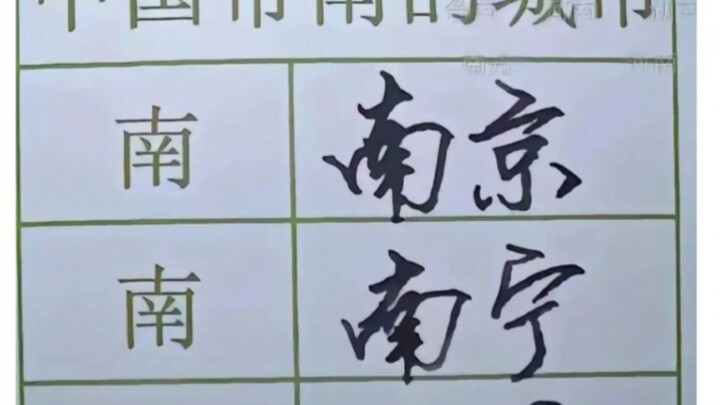 中国带南的城市
南 南京
南 南宁